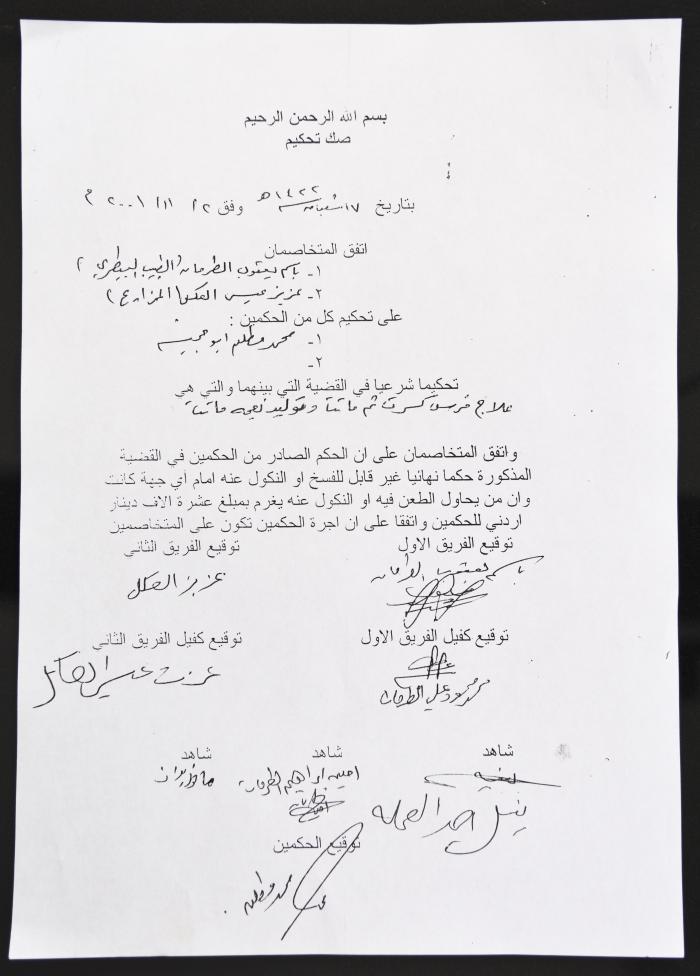 بسم الله الرحمن الرحيم
صك تحكيم
بتاريخ ١٧ شعبان سنة ١٤٢٢هـ وفق ٢ / ١١ / ٢٠٠١ م
اتفق المتخاصمان
١- باسم يعقوب الطرمان (الطبيب البيطري)
٢- عزيز عيسى العكل (المزارع)
على تحكيم كل من الحكمين :
١- محمد مطلق ابو
٢-
تحكيما شرعيا في القضية التي بينهما والتي هي
علاج فرس كسرت ثم ماتت وتوليد نعجه ماتت
واتفق المتخاصمان على ان الحكم الصادر من الحكمين في القضية
المذكورة حكما نهائيا غير قابل للفسخ او النكول عنه امام اي جهة كانت
وان من يحاول الطعن فيه او النكول عنه يغرم بمبلغ عشرة الاف دينار
اردني للحكمين واتفقا على ان اجرة الحكمين تكون على المتخاصمين
توقيع الفريق الاول توقيع الفريق الثاني
باسم يعقوب عزيز العكل
توقيع كفيل الفريق الاول توقيع كفيل الفريق الثاني
محمد محمود علي عزت عيسى العكل
شاهد شاهد شاهد
امين ابراهيم
احمد
توقيع الحكمين
محمد مطلق